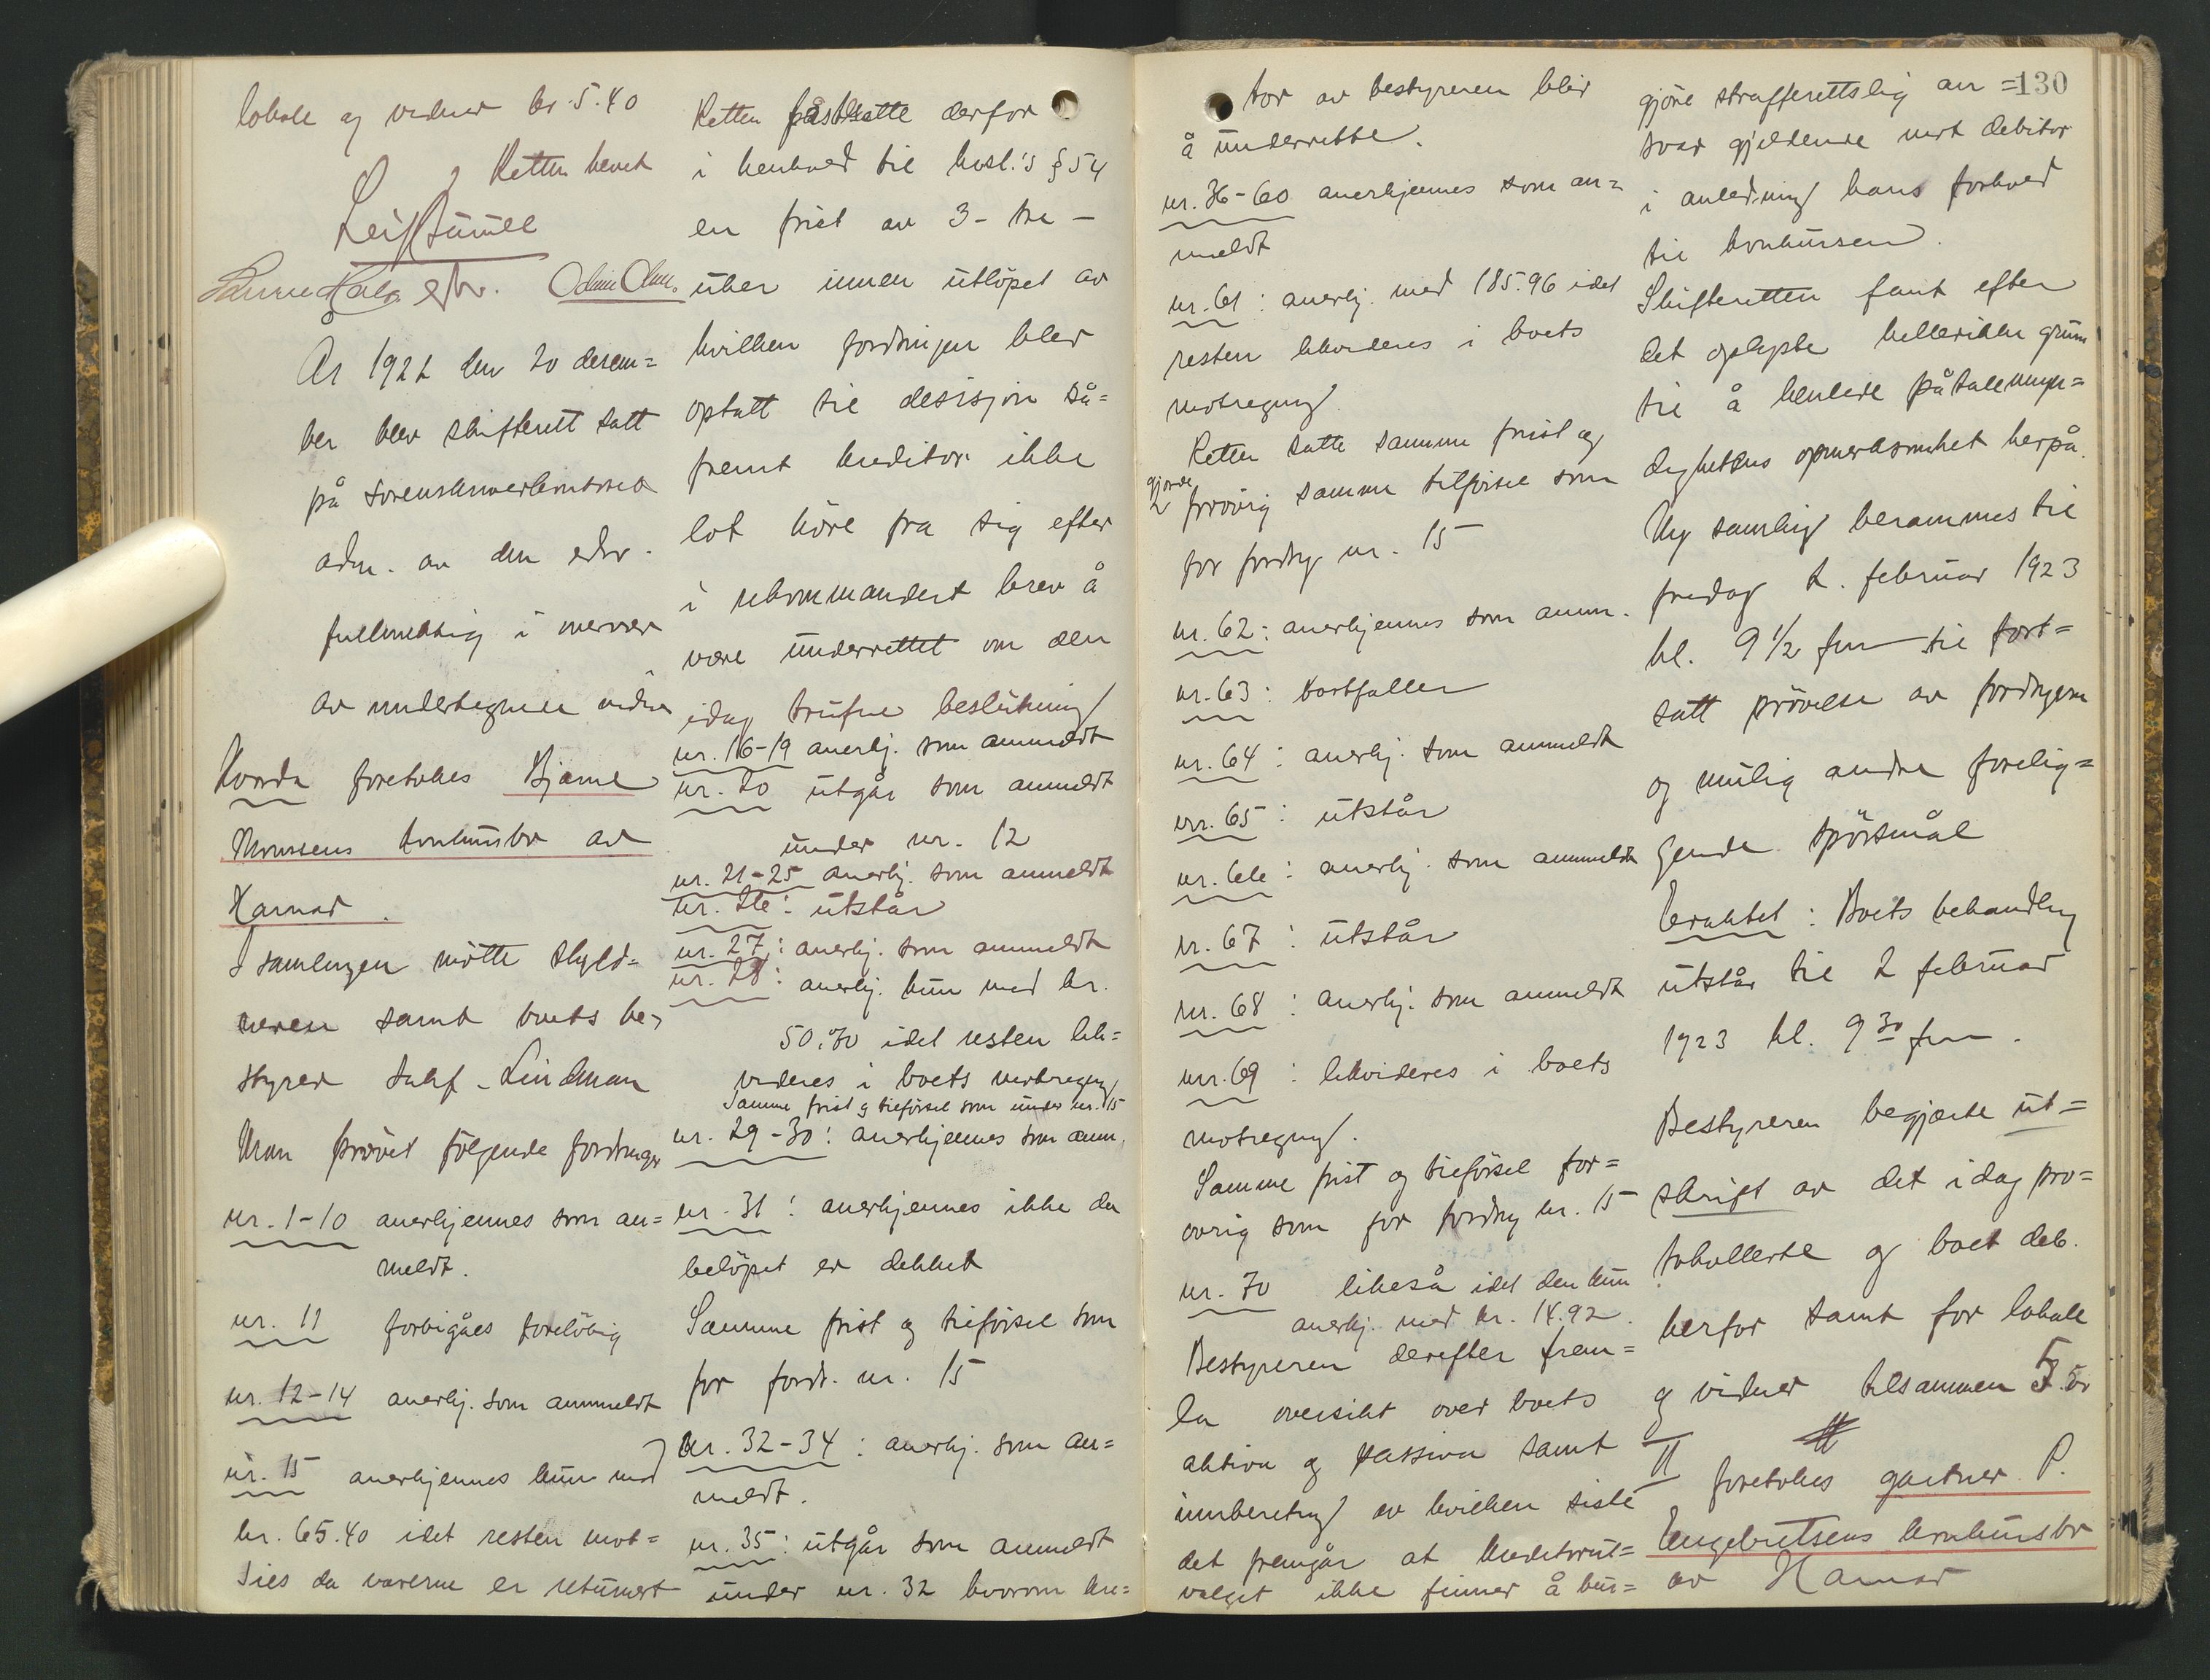 lokale og vidner kr. 5.40
Retten hevet
År 1922 den 20 desem=
ber blev skifterett satt
på sorenskriverkontoret
adm. av den edsv.
fullmektig i nærvær
av undertegnede vidner
Hvorda foretokes Bjarne
konkursbo av
Hamar.
I samlingen møtte skyld=
neren samt boets be=
styrer sakf. Lindman
Man prøvet følgende fordringer
nr. 1-10 anerkjennes som an=
meldt.
nr. 11 forbigåes foreløbig
nr. 12-14 anerkj. som anmeldt
nr. 15 anerkjennes kun med
kr. 65.40 idet resten mot=
sies da varerne er returnert
Retten fastsatte derfor
i henhold til kosl.'s § 54
en frist av 3 - tre -
uker innen utløpet av
hvilken fordringen blev
optatt til desisjon så=
fremt kreditor ikke
lot høre fra sig efter
i rekommandert brev å
være underrettet om den
idag trufne beslutning
nr. 16-19 anerkj. som anmeldt
nr. 20 utgår som anmeldt
under nr. 12
nr. 21-25 anerkj. som anmeldt
nr. 26: utstår
nr. 27: anerkj. som anmeldt
nr. 28: anerkj. kun med kr.
50.70 idet resten lik=
videres i boets motregning
Samme frist og tilførsel som under nr. 15
nr. 29-30: anerkjennes som anm.
nr. 31: anerkjennes ikke da
beløpet er dekket
Samme frist og tilførsel som
for fordr. nr. 15
Nr. 32-34: anerkj. som an=
meldt.
nr. 35: utgår som anmeldt
under nr. 32 hvorom kre=
tor av bestyreren blir
å underrette.
nr. 36-60 anerkjennes som an=
meldt
nr. 61: anerkj. med 185.96 idet
resten likvideres i boets
motregning
Retten satte samme frist og
gjorde
forøvrig samme tilførsel som
for fordrg nr. 15
nr. 62: anerkjennes som anm.
nr. 63: bortfaller
nr. 64: anerkj. som anmeldt
nr. 65: utstår
nr. 66: anerkj. som anmeldt
nr. 67: utstår
nr. 68: anerkj. som anmeldt
nr. 69: likvideres i boets
motregning.
Samme frist og tilførsel for=
øvrig som for fordrg nr. 15
nr. 70 likeså idet den kun
anerkj. med kr. 14.92.
Bestyreren derefter frem=
la oversikt over boets
aktiva og passiva samt
innberetng av hvilken siste
det fremgår at kreditorut=
valget ikke finner å bur=
130
gjøre strafferettslig an=
svar gjeldende mot debitor
i anledning hans forhold
til konkursen.
Skifteretten fant efter
det oplyste heller ikke grunn
til å henlede påtalemyn=
dighetens opmerksomhet herpå.
Ny samling berammes til
fredag 2. februar 1923
kl. 9 1/2 fm til fort=
satt prøvelse av fordringene
og mulig andre forelig=
gende spørsmål
Eraktet: Boets behandling
utstår til 2 februar
1923 kl. 9 30 fm.
Bestyreren begjærte ut=
skrift av det idag pro=
tokollerte og boet deb.
herfor samt for lokale
og vidner tilsammen
II
foretokes gartner P.
Engebretsens konkursbo
av Hamar